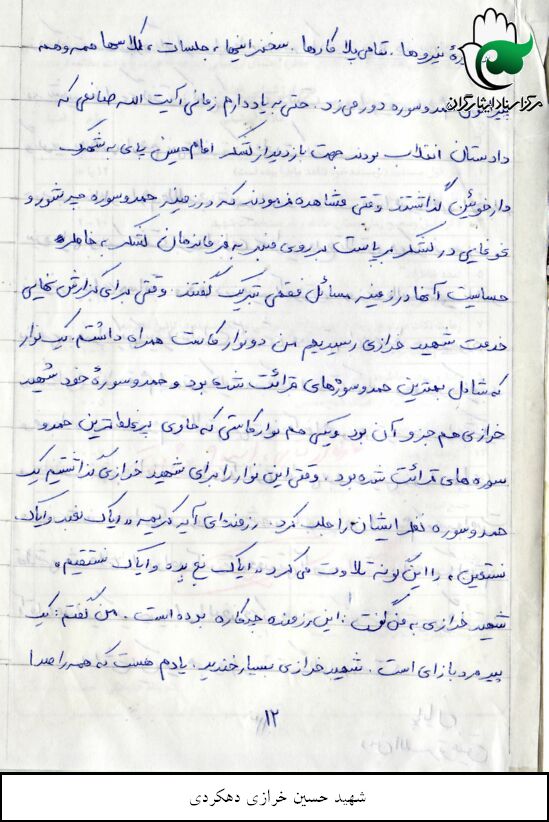 نیروها. تمامی پلاکاردها. سخنرانیها، جلسات، کلاسها همه و همه
مرکز اسناد ایثارگران
حمد و سوره دور می‌زد. حتی به یاد دارم زمانی آیت الله صانعی که
دادستان انقلاب بودند جهت بازدید از لشکر امام حسین پای به شهرک
دارخوئین گذاشتند وقتی مشاهده فرمودند که در زمینه حمد و سوره چه شور و
غوغایی در لشکر بر پاست بر روی منبر به فرماندهان لشکر به خاطره
حساسیت آنها در زمینه مسائل فقهی تبریک گفتند. وقتی برای گزارش نهایی
خدمت شهید خرازی رسیدیم من دو نوار کاست همراه داشتم. یک نوار
که شامل بهترین حمد و سوره‌های قرائت شده بود و حمد و سورهٔ خود شهید
خرازی هم جزو آن بود و یکی هم نوار کاستی که حاوی پر غلط ترین حمد و
سوره های قرائت شده بود. وقتی این نوار را برای شهید خرازی گذاشتیم یک
حمد و سوره نظر ایشان را جلب کرد. رزمنده‌ای آیه کریمه «ایاک نعبد و ایاک
نستعین» را این گونه تلاوت می‌کرد «ایاک نخ بده و ایاک نستقیم»
شهید خرازی به من گفت: این رزمنده چکاره بوده است. من گفتم: یک
پیرمرد بازاری است. شهید خرازی بسیار خندید. یادم هست که همه را صدا
۱۲
شهید حسین خرازی دهکردی